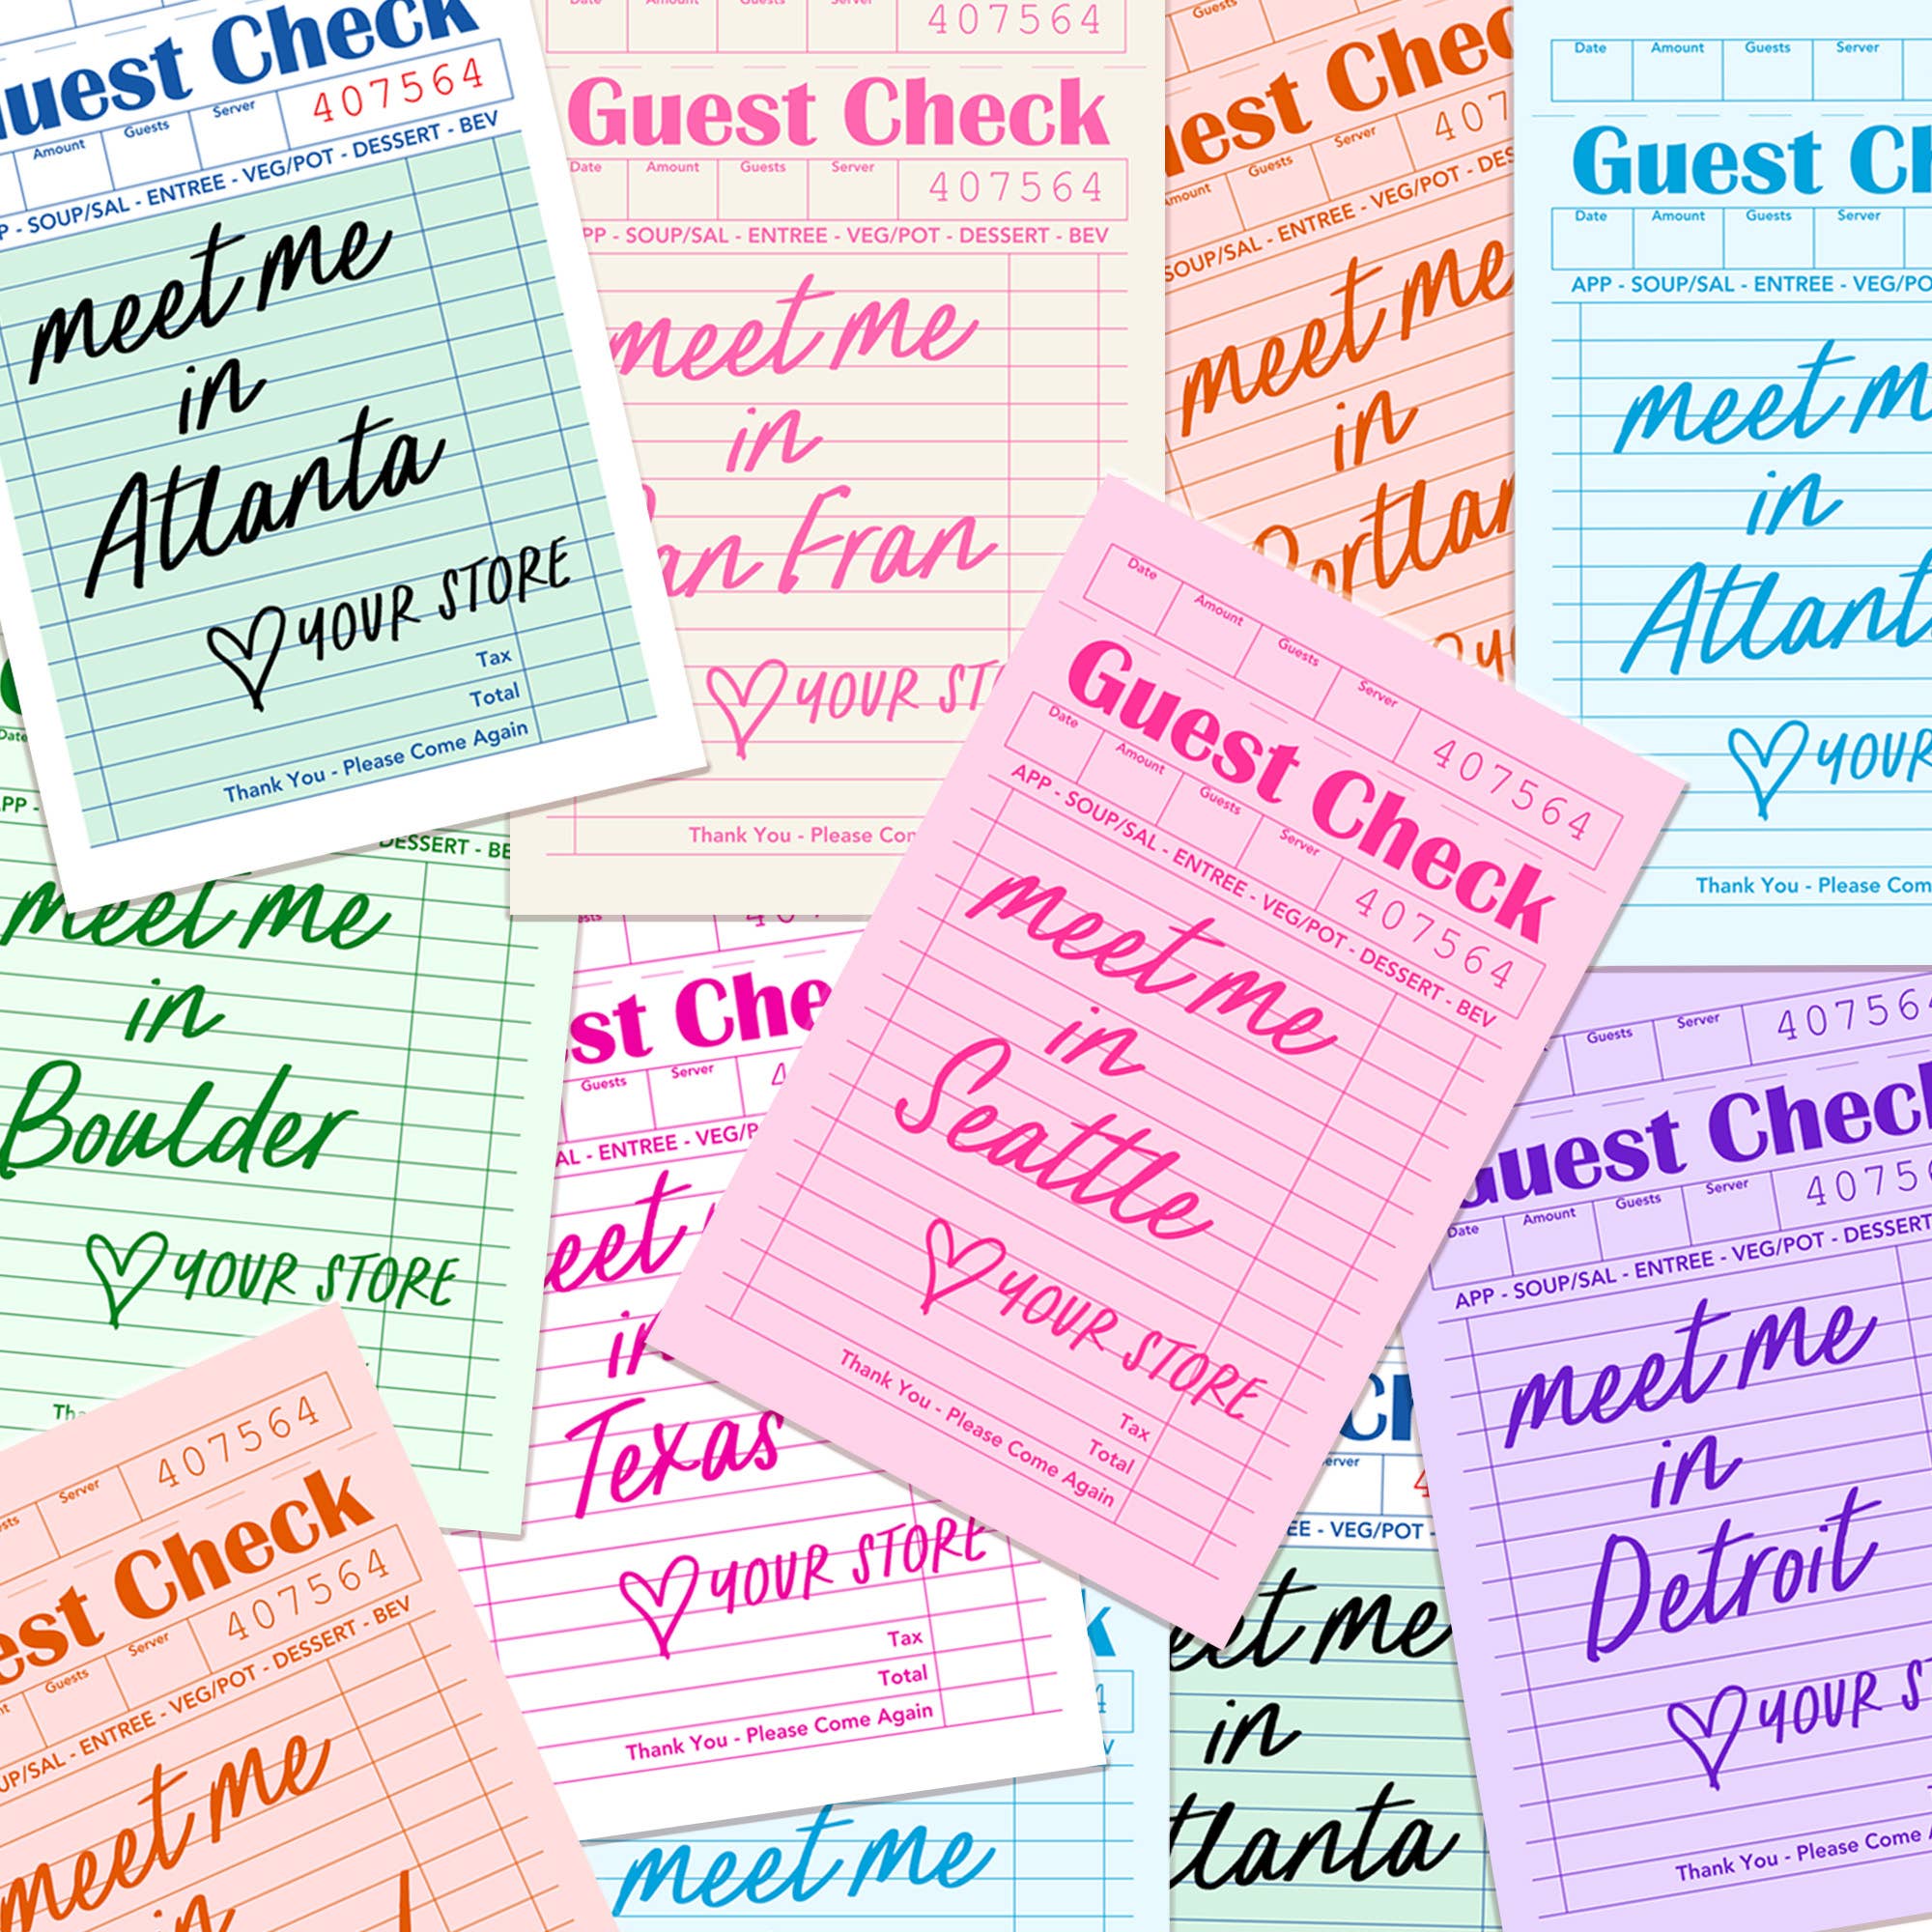 Guest Check
407564
Amount Guests Server
SOUP/SAL - ENTREE - VEG/POT - DESSERT - BEV
meet me
in
Atlanta
♡ YOUR STORE
Tax
Total
Thank You - Please Come Again
Date Amount Guests Server 407564
Guest Check
Date Amount Guests Server 407564
SOUP/SAL - ENTREE - VEG/POT - DESSERT - BEV
meet me
in
San Fran
♡ YOUR
Thank You - Please
Guests
Guest
Amount Guests Server
SOUP/SAL - ENTREE - VEG/POT
meet me
in
Portland
Date Amount Guests Server
Guest
Date Amount Guests Server
APP - SOUP/SAL - ENTREE -
meet
in
Atlanta
♡ YOUR
Thank You - Please
Date
DESSERT
meet me
in
Boulder
♡ YOUR STORE
Guests Server
ENTREE
meet
in
Texas
♡ YOUR STORE
Tax
Total
Thank You - Please Come Again
Date Amount Guests Server 407564
Guest Check
Date Amount Guests Server 407564
APP - SOUP/SAL - ENTREE - VEG/POT - DESSERT - BEV
meet me
in
Seattle
♡ YOUR STORE
Tax
Total
Thank You - Please Come Again
Guests Server
Guest Check
Date Amount Guests Server
APP - SOUP/SAL - ENTREE - VEG/POT - DESSERT
meet me
in
Detroit
♡ YOUR
Thank You - Please Come
Server 407564
Guest Check
Guests Server 407564
ENTREE - VEG/POT - DESSERT - BEV
meet me
in
meet me
VEG/POT -
meet me
in
Atlanta